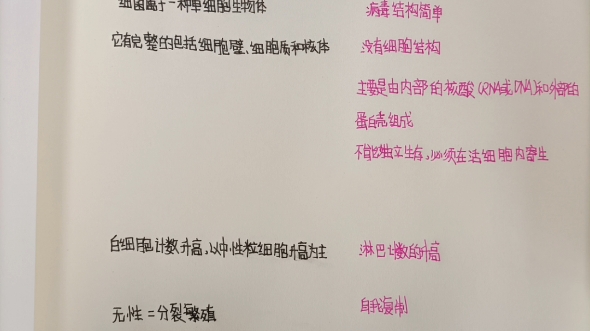 细菌属于一种单细胞生物体
病毒结构简单
它有完整的包括细胞壁、细胞质和核体
没有细胞结构
主要是由内部的核酸(RNA或DNA)和外部的
蛋白壳组成
不能独立生存,必须在活细胞内寄生
白细胞计数升高,以中性粒细胞升高为主
淋巴计数的升高
无性=分裂繁殖
自我复制